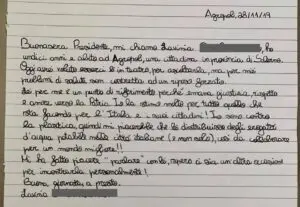 Agropoli, 28/11/19
Buonasera Presidente, mi chiamo Lavinia, ho
undici anni e abito ad Agropoli, una cittadina in provincia di Salerno.
Oggi avrei voluto esserci a teatro, per ascoltarla, ma per miei
problemi di salute sono costretta ad un riposo forzato.
Lei per me è un punto di riferimento perché emana giustizia, rispetto
e amore verso la Patria. Io la stimo molto per tutto quello che
sta facendo per l'Italia e i suoi cittadini! Io sono contro
la plastica, quindi mi piacerebbe che si distribuissero degli erogatori
d'acqua potabile nelle città italiane (e non solo), così da collaborare
per un mondo migliore!!
Mi ha fatto piacere "parlare" con lei, spero ci sia un'altra occasione
per incontrarla personalmente!
Buona giornata, a presto.
Lavinia